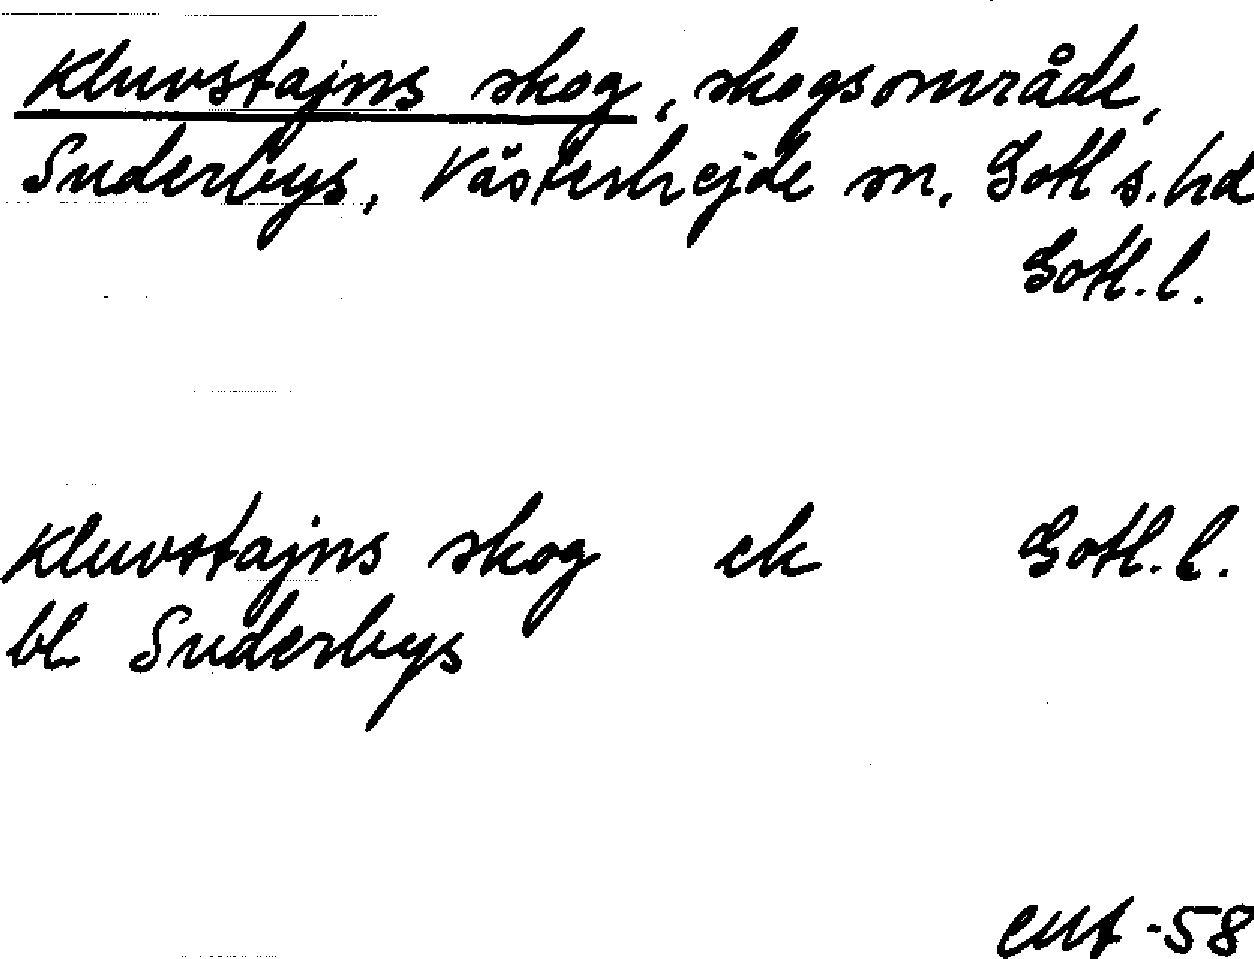 Kluvstajns skog, skogsområde,
Suderbys, Västerhejde sn. Gotl s. hd
Gotl. l.
Kluvstajns skog ek Gotl. l.
bl Suderbys
-58